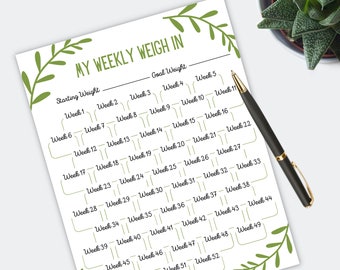 MY WEEKLY WEIGH IN
Starting Weight Goal Weight
Week 1 Week 2 Week 3 Week 4 Week 5
Week 6 Week 7 Week 8 Week 9 Week 10 Week 11
Week 12 Week 13 Week 14 Week 15 Week 16
Week 17 Week 18 Week 19 Week 20 Week 21 Week 22
Week 23 Week 24 Week 25 Week 26 Week 27
Week 28 Week 29 Week 30 Week 31 Week 32 Week 33
Week 34 Week 35 Week 36 Week 37 Week 38
Week 39 Week 40 Week 41 Week 42 Week 43 Week 44
Week 45 Week 46 Week 47 Week 48 Week 49
Week 50 Week 51 Week 52